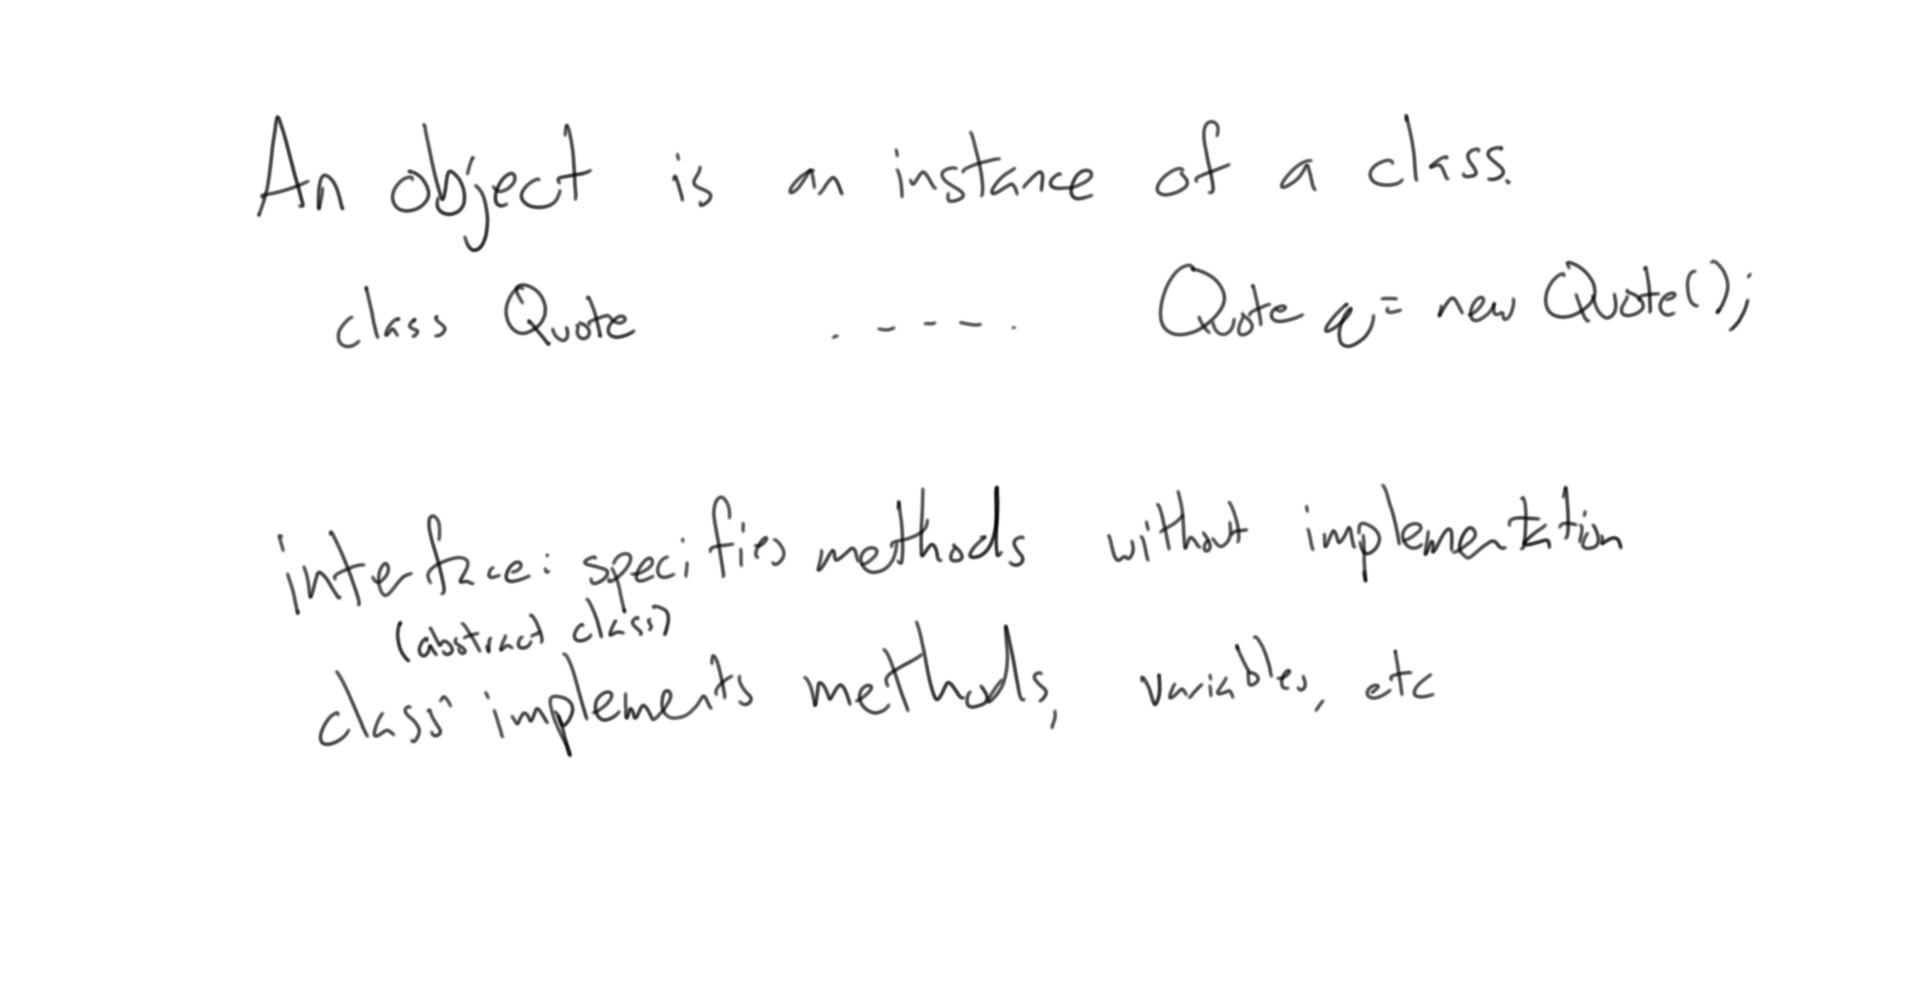 An object is an instance of a class.
class Quote ..--- . Quote q = new Quote();
interface: specifies methods without implementation
(abstract class)
class implements methods, variables, etc